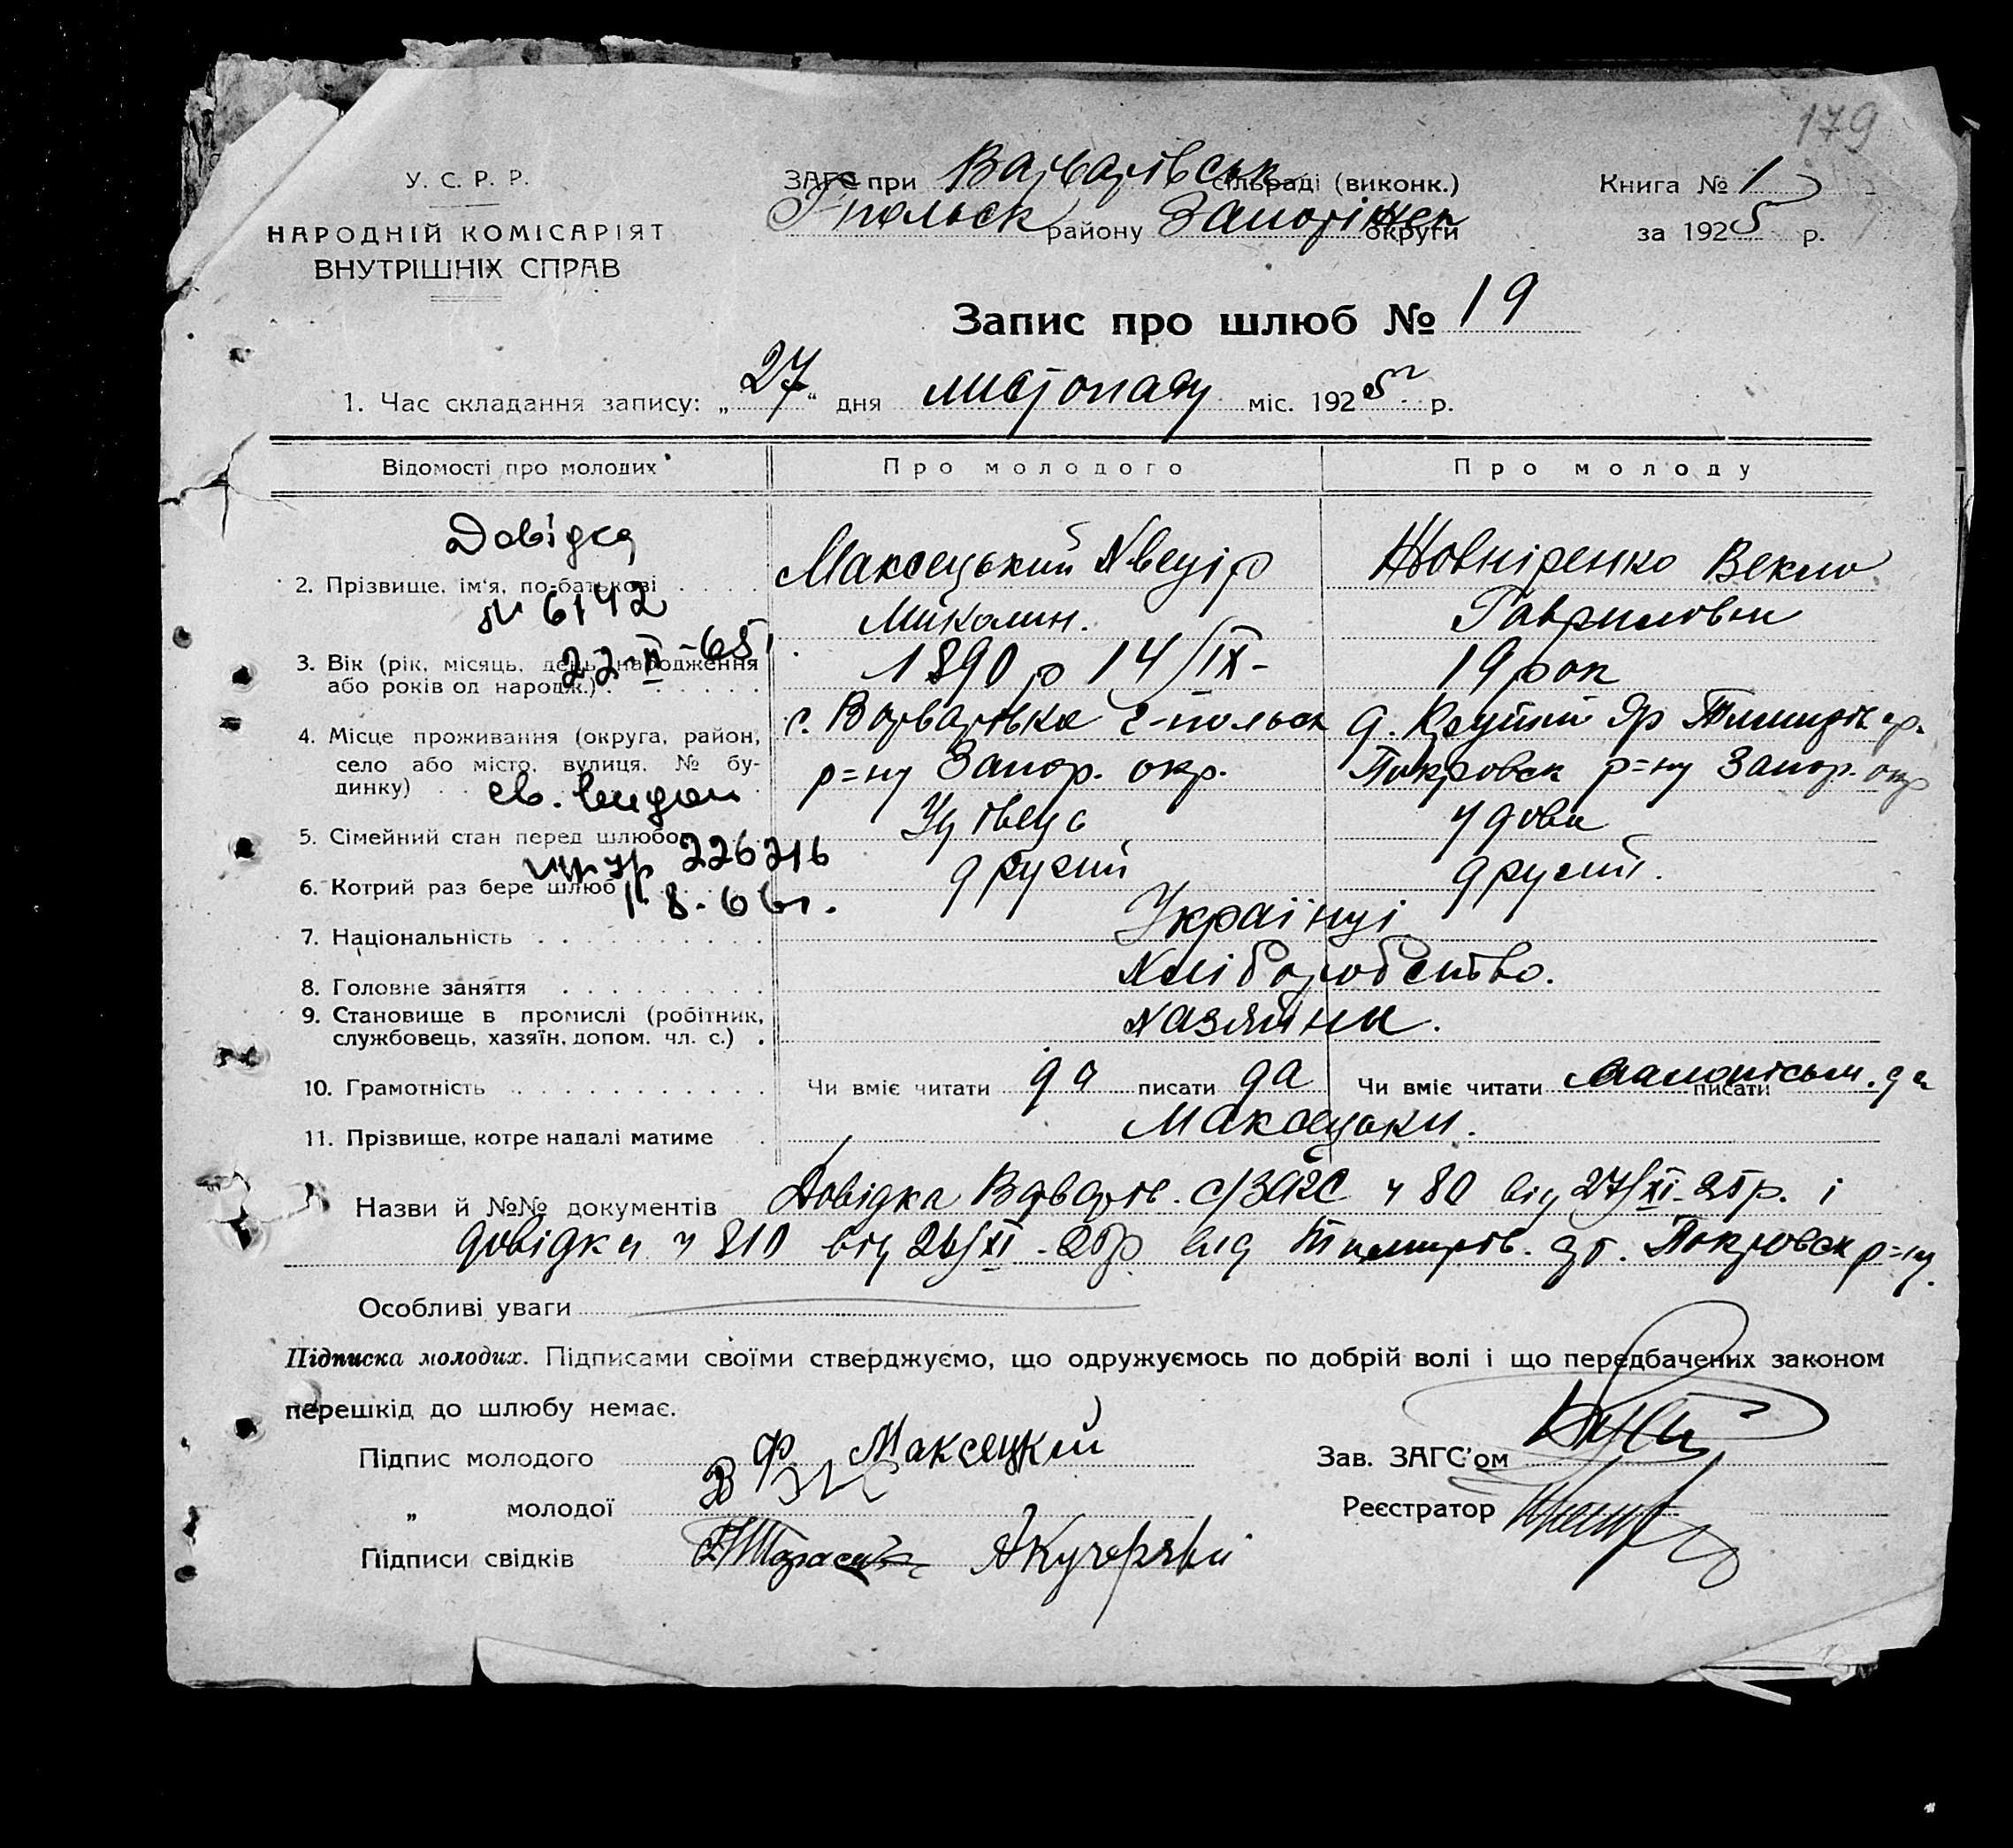 179
У. С. Р. Р.
НАРОДНІЙ КОМІСАРІЯТ
ВНУТРІШНІХ СПРАВ
ЗАГС при Варварівськ сільраді (виконк.)
Г-польськ району Запоріжск округи
Книга № 1
за 1925 р.
Запис про шлюб № 19
1. Час складання запису: „27“ дня листопаду міс. 1925 р.
Відомості про молодих
Про молодого
Про молоду
Довідка
№ 6142
22-II-65
2. Прізвище, ім'я, по-батькові
Максецький
Миколин.
Жовніренко Векла
Гавриловна
3. Вік (рік, місяць, день народження
або років од народж.)
1890 р 14/IX-
19 рок
4. Місце проживання (округа, район,
село або місто, вулиця, № бу-
динку)
с. Варварівка Г-польск
р=ну Запор. окр.
Крутий Яр
Покровск р=ну Запор. окр
св. выдан
226216
8-66г.
5. Сімейний стан перед шлюбом
Удівець
удова
6. Котрий раз бере шлюб
другий
другий.
7. Національність
Українці
8. Головне заняття
Хліборобство.
9. Становище в промислі (робітник,
службовець, хазяїн, допом. чл. с.)
хазяїни.
10. Грамотність
Чи вміє читати да писати да
Чи вміє читати писати
11. Прізвище, котре надалі матиме
Максецьки.
Назви й №№ документів Довідка Варварів. с/ЗАГС ч 80 від 27/XI-25р. і
довідка ч 810 від 26/XI-25р від Покровск р=ну
Особливі уваги
Підписка молодих. Підписами своїми стверджуємо, що одружуємось по добрій волі і що передбачених законом
перешкід до шлюбу немає.
Підпис молодого Ф. Максецкий
„ молодої
Підписи свідків А Кучерявий
Зав. ЗАГС'ом
Реєстратор